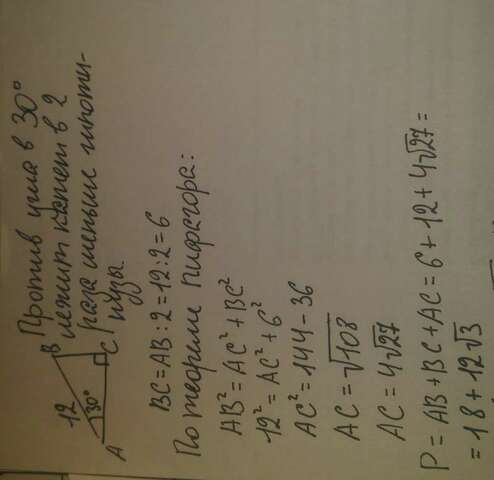 12
B
30°
A
C
Против угла в 30°
лежит катет в 2
раза меньше гипоте-
нузы.
BC = AB : 2 = 12 : 2 = 6
По теореме Пифагора:
AB² = AC² + BC²
12² = AC² + 6²
AC² = 144 - 36
AC = √108
AC = 4√27
P = AB + BC + AC = 6 + 12 + 4√27 =
= 18 + 12√3